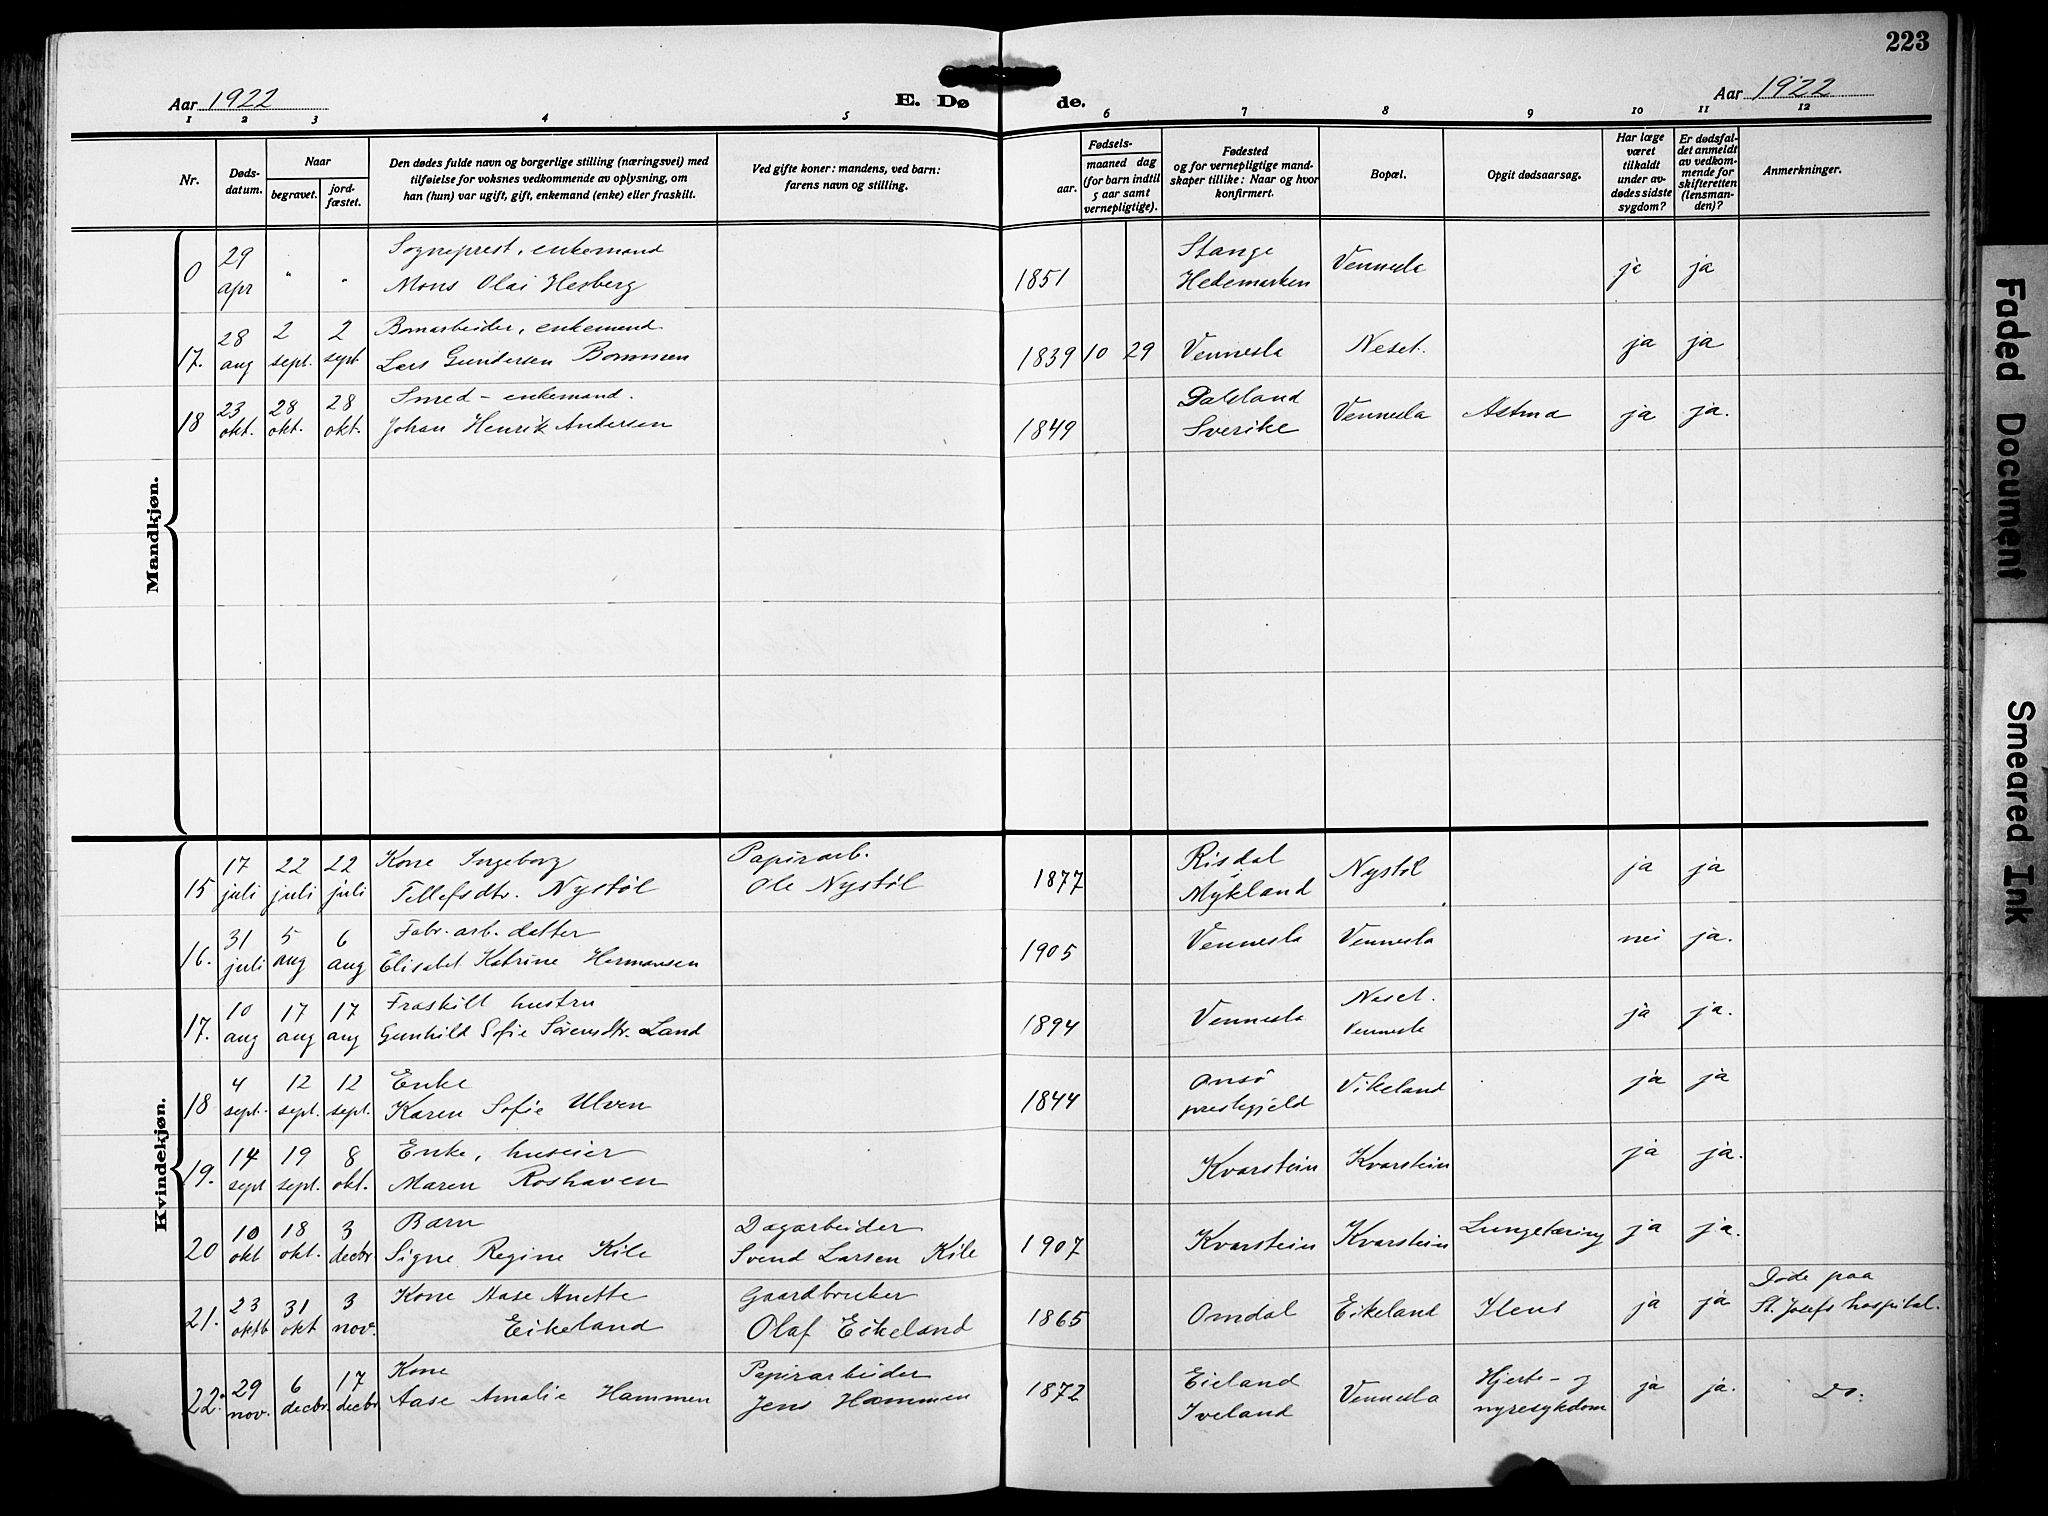 223
Aar 1922
E. Dø
de.
Aar 1922
1 2 3 4 5 6 7 8 9 10 11 12
Nr.
Døds-
datum.
Naar
begravet.
jord-
fæstet.
Den dødes fulde navn og borgerlige stilling (næringsvei) med
tilføielse for voksnes vedkommende av oplysning, om
han (hun) var ugift, gift, enkemand (enke) eller fraskilt.
Ved gifte koner: mandens, ved barn:
farens navn og stilling.
Fødsels-
aar.
maaned dag
(for barn indtil
5 aar samt
vernepligtige).
Fødested
og for vernepligtige mand-
skaper tillike: Naar og hvor
konfirmert.
Bopæl.
Opgit dødsaarsag.
Har læge
været
tilkaldt
under av-
dødes sidste
sygdom?
Er dødsfal-
det anmeldt
av vedkom-
mende for
skifteretten
(lensman-
den)?
Anmerkninger.
Mandkjøn.
29 Sogneprest, enkemand Stange Vennesla ja ja
0 apr " " Mons Olai Hesberg 1851 Hedemarken
28 2 2 Bomarbeider, enkemand
17. aug sept. sept Lars Gundersen Bommen 1839 10 29 Vennesla Neset. ja ja
23 28 28 Smed - enkemand. Dalsland
18 okt. okt. okt. Johan Henrik Andersen 1849 Sverike Vennesla Astma ja ja.
Kvindekjøn.
17 22 22 Kone Ingeborg Papirarb. Risdal
15 juli juli juli Tellefsdtr. Nystøl Ole Nystøl 1877 Mykland Nystøl ja ja
31 5 6 Fabr. arb. datter
16. juli aug aug Elisabet Katrine Hermansen 1905 Vennesla Vennesla nei ja.
10 17 17 Fraskilt hustru Neset.
17. aug aug aug Gunhild Sofie Sørensdtr. Land 1894 Vennesla Vennesla ja ja.
4 12 12 Enke Onsø
18 sept. sept. sept. Karen Sofie Ulven 1844 prestegjeld Vikeland ja ja
14 19 8 Enke, huseier
19. sept sept. okt. Maren Roshaven Kvarstein Kvarstein ja ja.
10 18 3 Barn Dagarbeider
20 okt okt. decbr Signe Regine Kile Svend Larsen Kile 1907 Kvarstein Kvarstein Lungetæring ja ja.
23 31 3 Kone Aase Anette Gaardbruker Døde paa
21. oktb okt nov. Eikeland Olaf Eikeland 1865 Omdal Eikeland Ileus ja ja St. Josefs hospital.
29 6 17 Kone Papirarbeider Eieland Hjerte- og
22. nov. decbr. decbr Aase Amalie Hammen Jens Hammen 1872 Iveland Vennesla nyresykdom ja ja. Do.
Faded Document
Smeared Ink